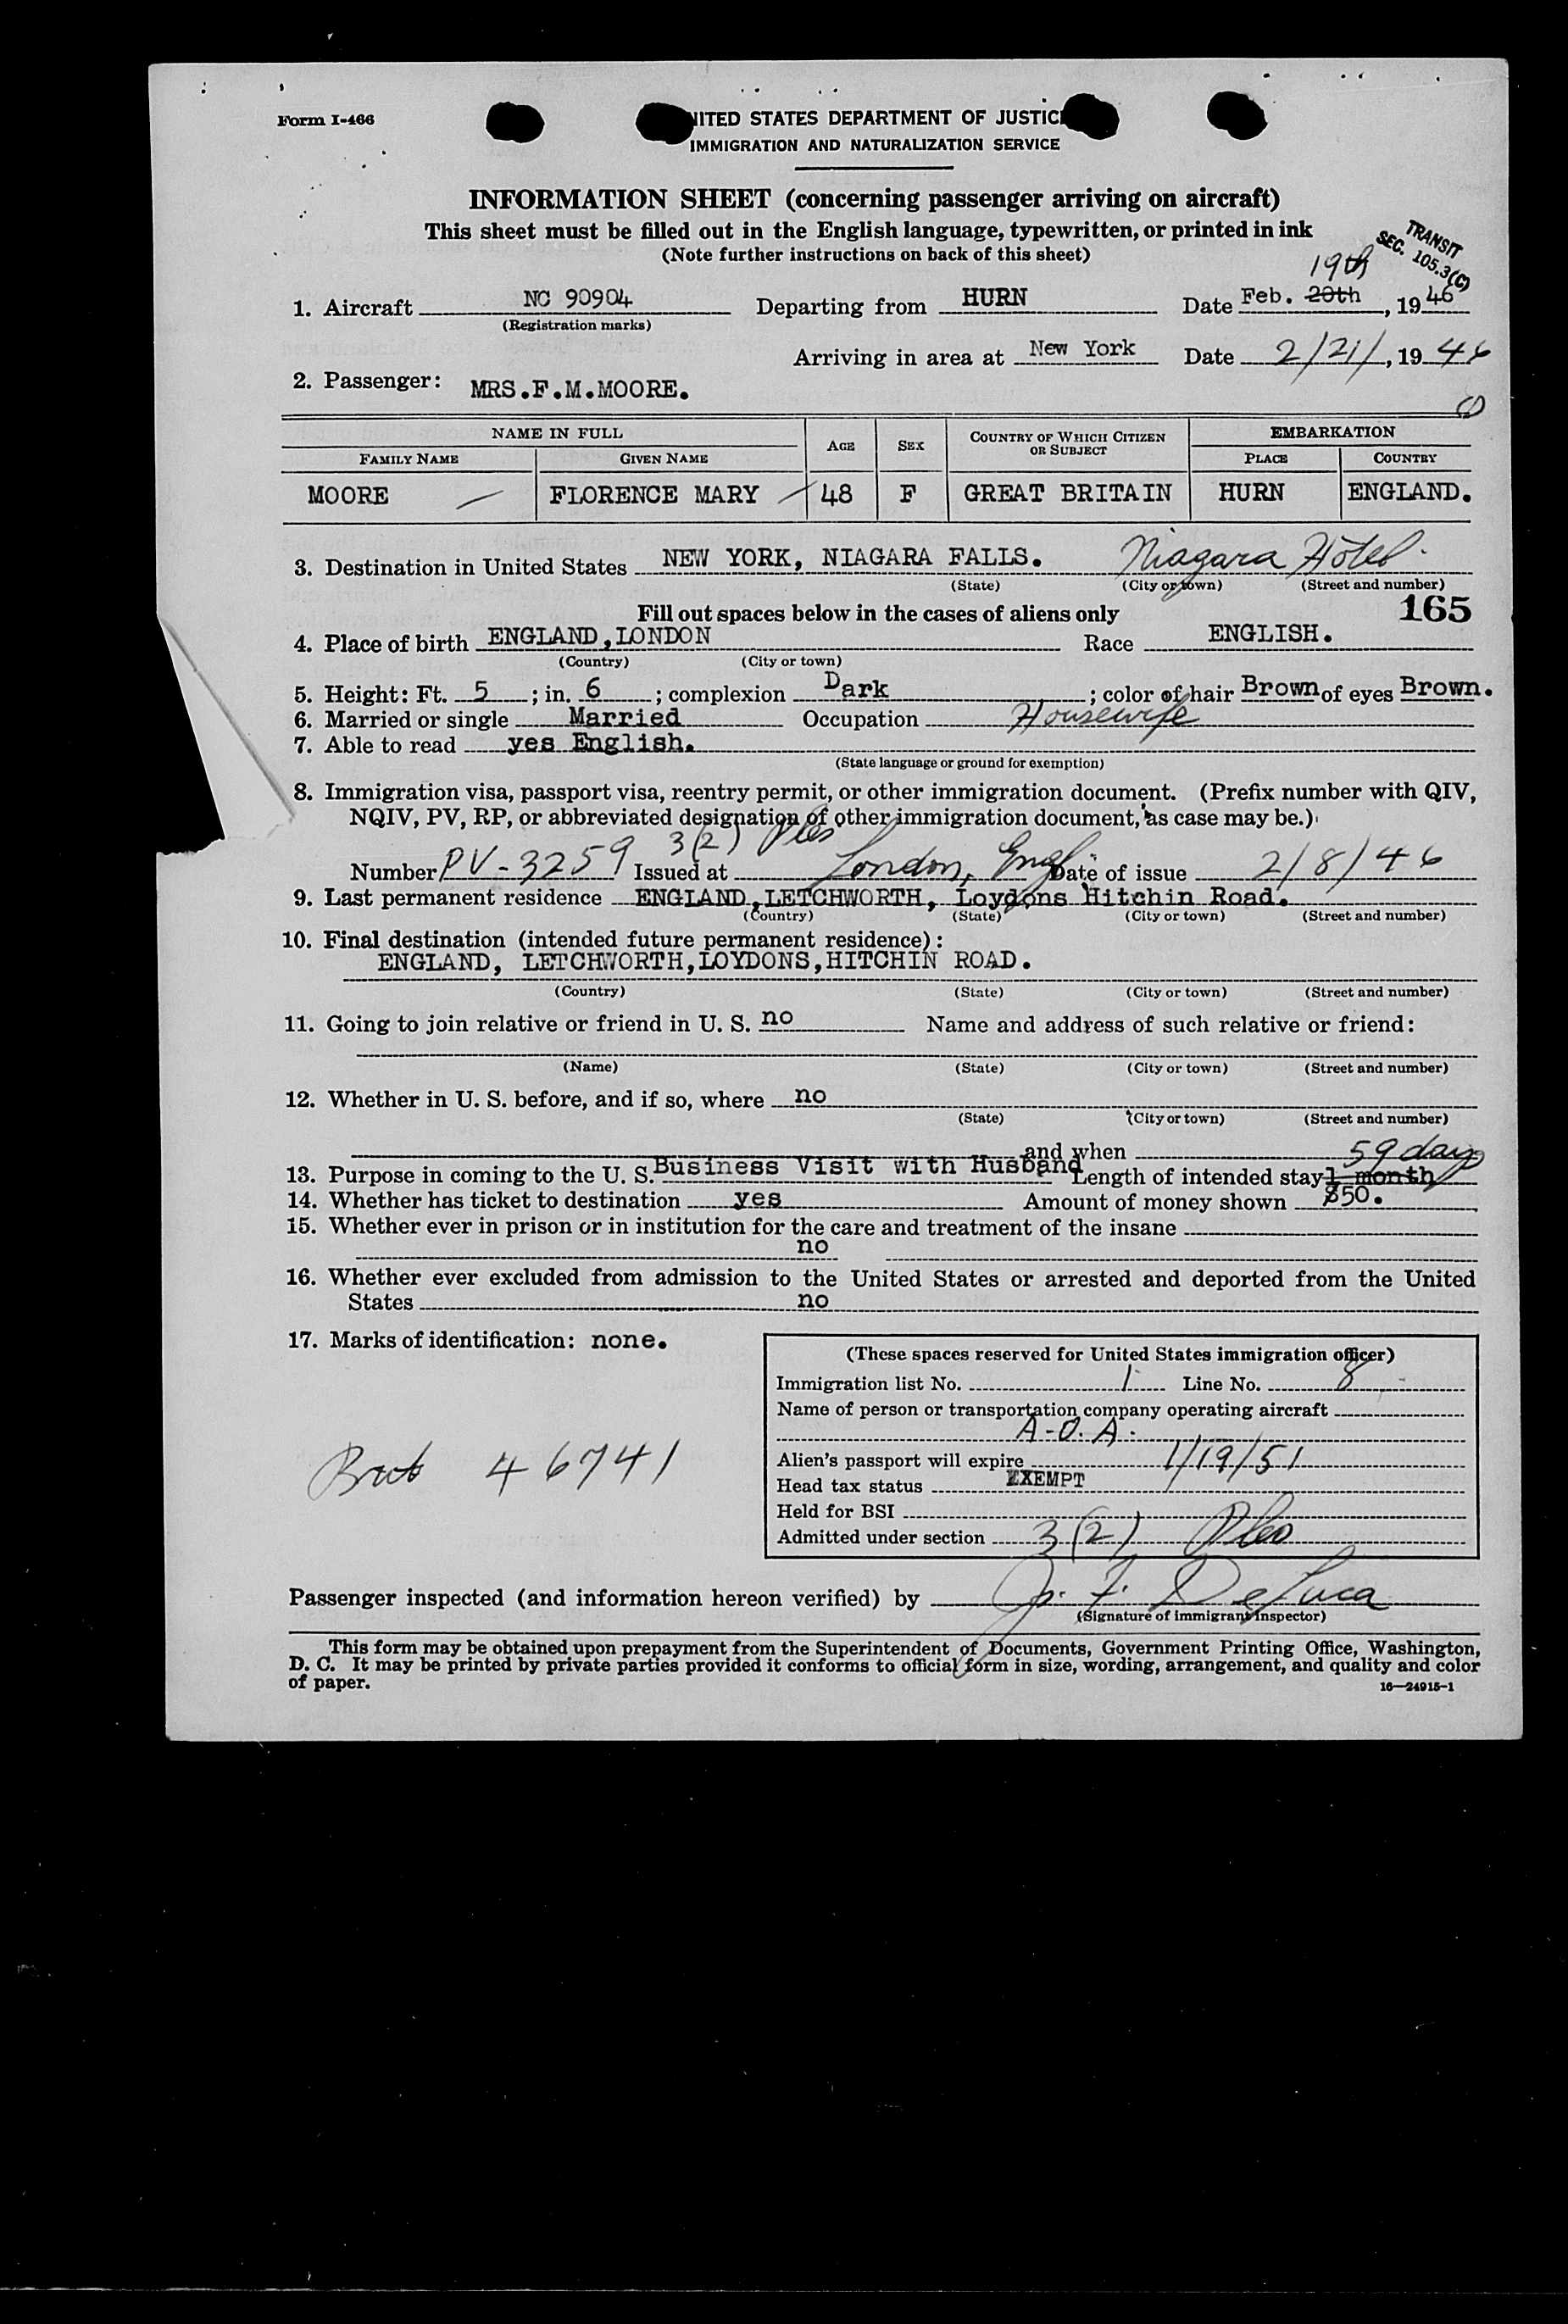 Form I-466
UNITED STATES DEPARTMENT OF JUSTICE
IMMIGRATION AND NATURALIZATION SERVICE
INFORMATION SHEET (concerning passenger arriving on aircraft)
This sheet must be filled out in the English language, typewritten, or printed in ink
(Note further instructions on back of this sheet)
TRANSIT
SEC. 105.3(C)
19th
1. Aircraft NC 90904 Departing from HURN Date Feb. 20th, 1946
(Registration marks)
Arriving in area at New York Date 2/21/, 1946
2. Passenger: MRS.F.M.MOORE.
NAME IN FULL AGE SEX COUNTRY OF WHICH CITIZEN OR SUBJECT EMBARKATION
FAMILY NAME GIVEN NAME PLACE COUNTRY
MOORE FLORENCE MARY 48 F GREAT BRITAIN HURN ENGLAND.
3. Destination in United States NEW YORK, NIAGARA FALLS. Niagara Hotel.
(State) (City or town) (Street and number)
Fill out spaces below in the cases of aliens only 165
4. Place of birth ENGLAND,LONDON Race ENGLISH.
(Country) (City or town)
5. Height: Ft. 5; in. 6; complexion Dark; color of hair Brown of eyes Brown.
6. Married or single Married Occupation Housewife
7. Able to read yes English.
(State language or ground for exemption)
8. Immigration visa, passport visa, reentry permit, or other immigration document. (Prefix number with QIV,
NQIV, PV, RP, or abbreviated designation of other immigration document, as case may be.)
3(2)
Number PV-3259 Issued at London, Engl Date of issue 2/8/46
9. Last permanent residence ENGLAND,LETCHWORTH, Loydons Hitchin Road.
(Country) (State) (City or town) (Street and number)
10. Final destination (intended future permanent residence):
ENGLAND, LETCHWORTH,LOYDONS,HITCHIN ROAD.
(Country) (State) (City or town) (Street and number)
11. Going to join relative or friend in U. S. no Name and address of such relative or friend:
(Name) (State) (City or town) (Street and number)
12. Whether in U. S. before, and if so, where no
(State) (City or town) (Street and number)
and when
59 days
13. Purpose in coming to the U. S. Business Visit with Husband Length of intended stay 1 month
14. Whether has ticket to destination yes Amount of money shown $50.
15. Whether ever in prison or in institution for the care and treatment of the insane
no
16. Whether ever excluded from admission to the United States or arrested and deported from the United
States no
17. Marks of identification: none.
(These spaces reserved for United States immigration officer)
Immigration list No. 1 Line No. 8
Name of person or transportation company operating aircraft
A-O.A.
Alien's passport will expire 1/19/51
Head tax status EXEMPT
Held for BSI
Admitted under section 3(2)
Brit 46741
Passenger inspected (and information hereon verified) by J. F. DeLuca
(Signature of immigrant inspector)
This form may be obtained upon prepayment from the Superintendent of Documents, Government Printing Office, Washington,
D. C. It may be printed by private parties provided it conforms to official form in size, wording, arrangement, and quality and color
of paper.
16—24915-1